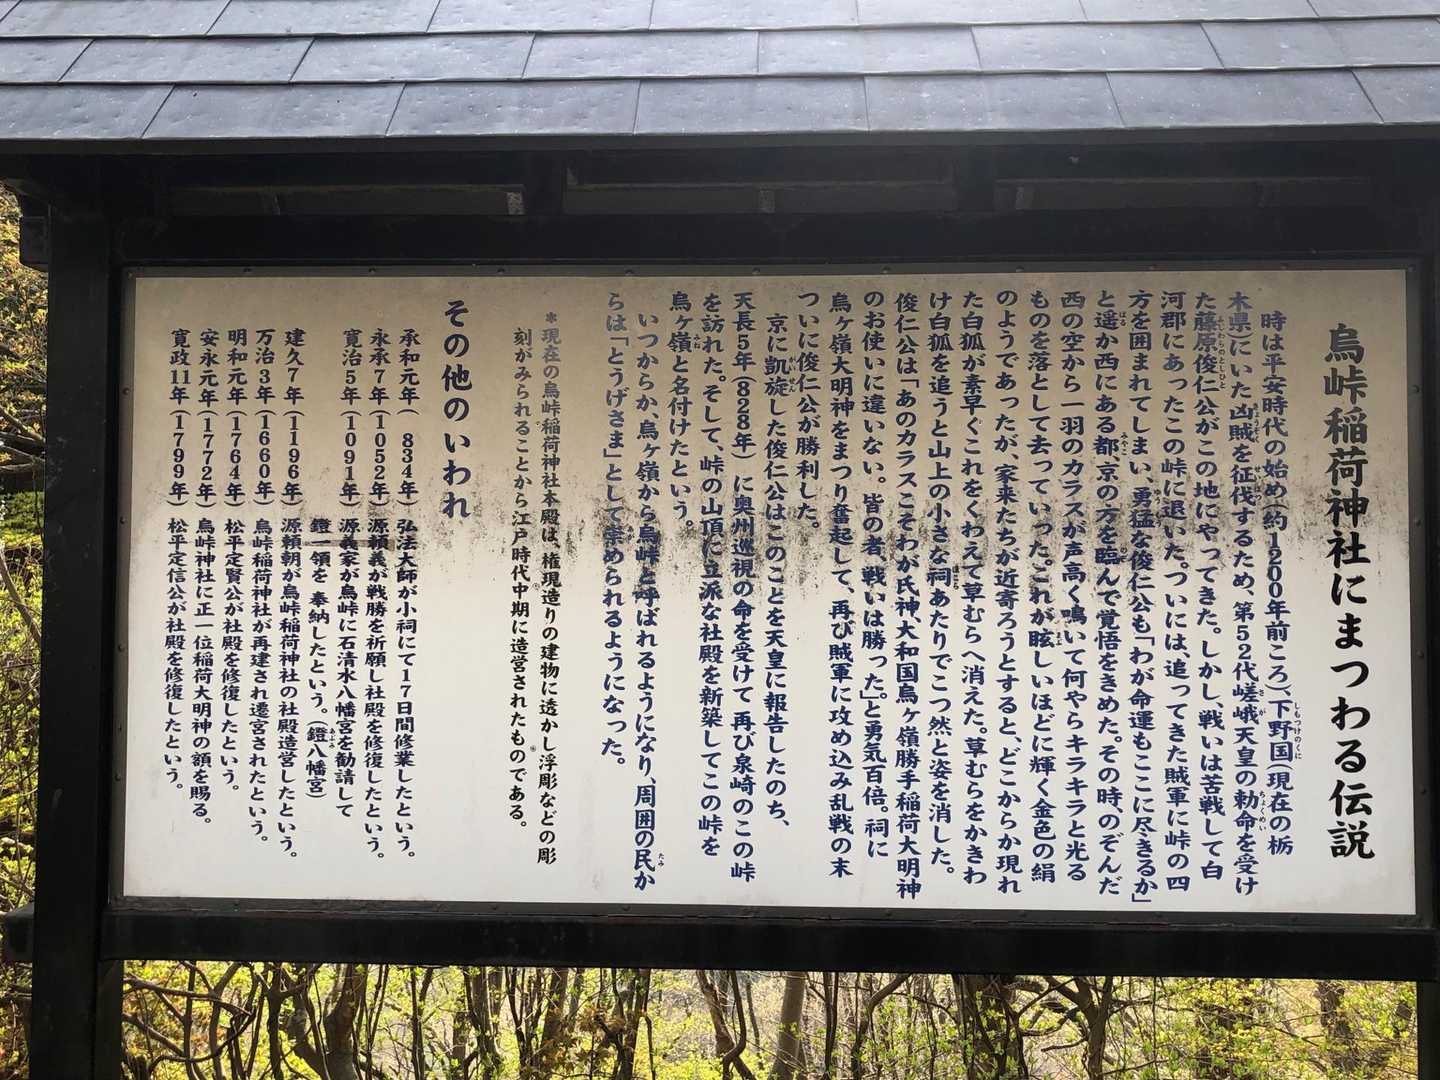 烏峠稲荷神社にまつわる伝説
時は平安時代の始め(約1200年前ころ)、下野国(現在の栃
木県)にいた凶賊を征伐するため、第52代嵯峨天皇の勅命を受け
た藤原俊仁公がこの地にやってきた。しかし、戦いは苦戦して白
河郡にあったこの峠に退いた。ついには、追ってきた賊軍に峠の四
方を囲まれてしまい、勇猛な俊仁公も「わが命運もここに尽きるか」
と遥か西にある都、京の方を臨んで覚悟をきめた。その時のぞんだ
西の空から一羽のカラスが声高く鳴いて何やらキラキラと光る
ものを落として去っていった。これが眩しいほどに輝く金色の絹
のようであったが、家来たちが近寄ろうとすると、どこからか現れ
た白狐が素早くこれをくわえて草むらへ消えた。草むらをかきわ
け白狐を追うと山上の小さな祠あたりでこつ然と姿を消した。
俊仁公は「あのカラスこそわが氏神、大和国烏ヶ嶺勝手稲荷大明神
のお使いに違いない。皆の者、戦いは勝った」と勇気百倍。祠に
烏ヶ嶺大明神をまつり奮起して、再び賊軍に攻め込み乱戦の末
ついに俊仁公が勝利した。
京に凱旋した俊仁公はこのことを天皇に報告したのち、
天長5年(828年)に奥州巡視の命を受けて再び泉崎のこの峠
を訪れた。そして、峠の山頂に立派な社殿を新築してこの峠を
烏ヶ嶺と名付けたという。
いつからか、烏ヶ嶺から烏峠と呼ばれるようになり、周囲の民か
らは「とうげさま」として崇められるようになった。
*現在の烏峠稲荷神社本殿は、権現造りの建物に透かし浮彫などの彫
刻がみられることから江戸時代中期に造営されたものである。
その他のいわれ
承和元年( 834年) 弘法大師が小祠にて17日間修業したという。
永承7年(1052年) 源頼義が戦勝を祈願し社殿を修復したという。
寛治5年(1091年) 源義家が烏峠に石清水八幡宮を勧請して
鎧一領を奉納したという。(鎧八幡宮)
建久7年(1196年) 源頼朝が烏峠稲荷神社の社殿造営したという。
万治3年(1660年) 烏峠稲荷神社が再建され遷宮されたという。
明和元年(1764年) 松平定賢公が社殿を修復したという。
安永元年(1772年) 烏峠神社に正一位稲荷大明神の額を賜る。
寛政11年(1799年) 松平定信公が社殿を修復したという。